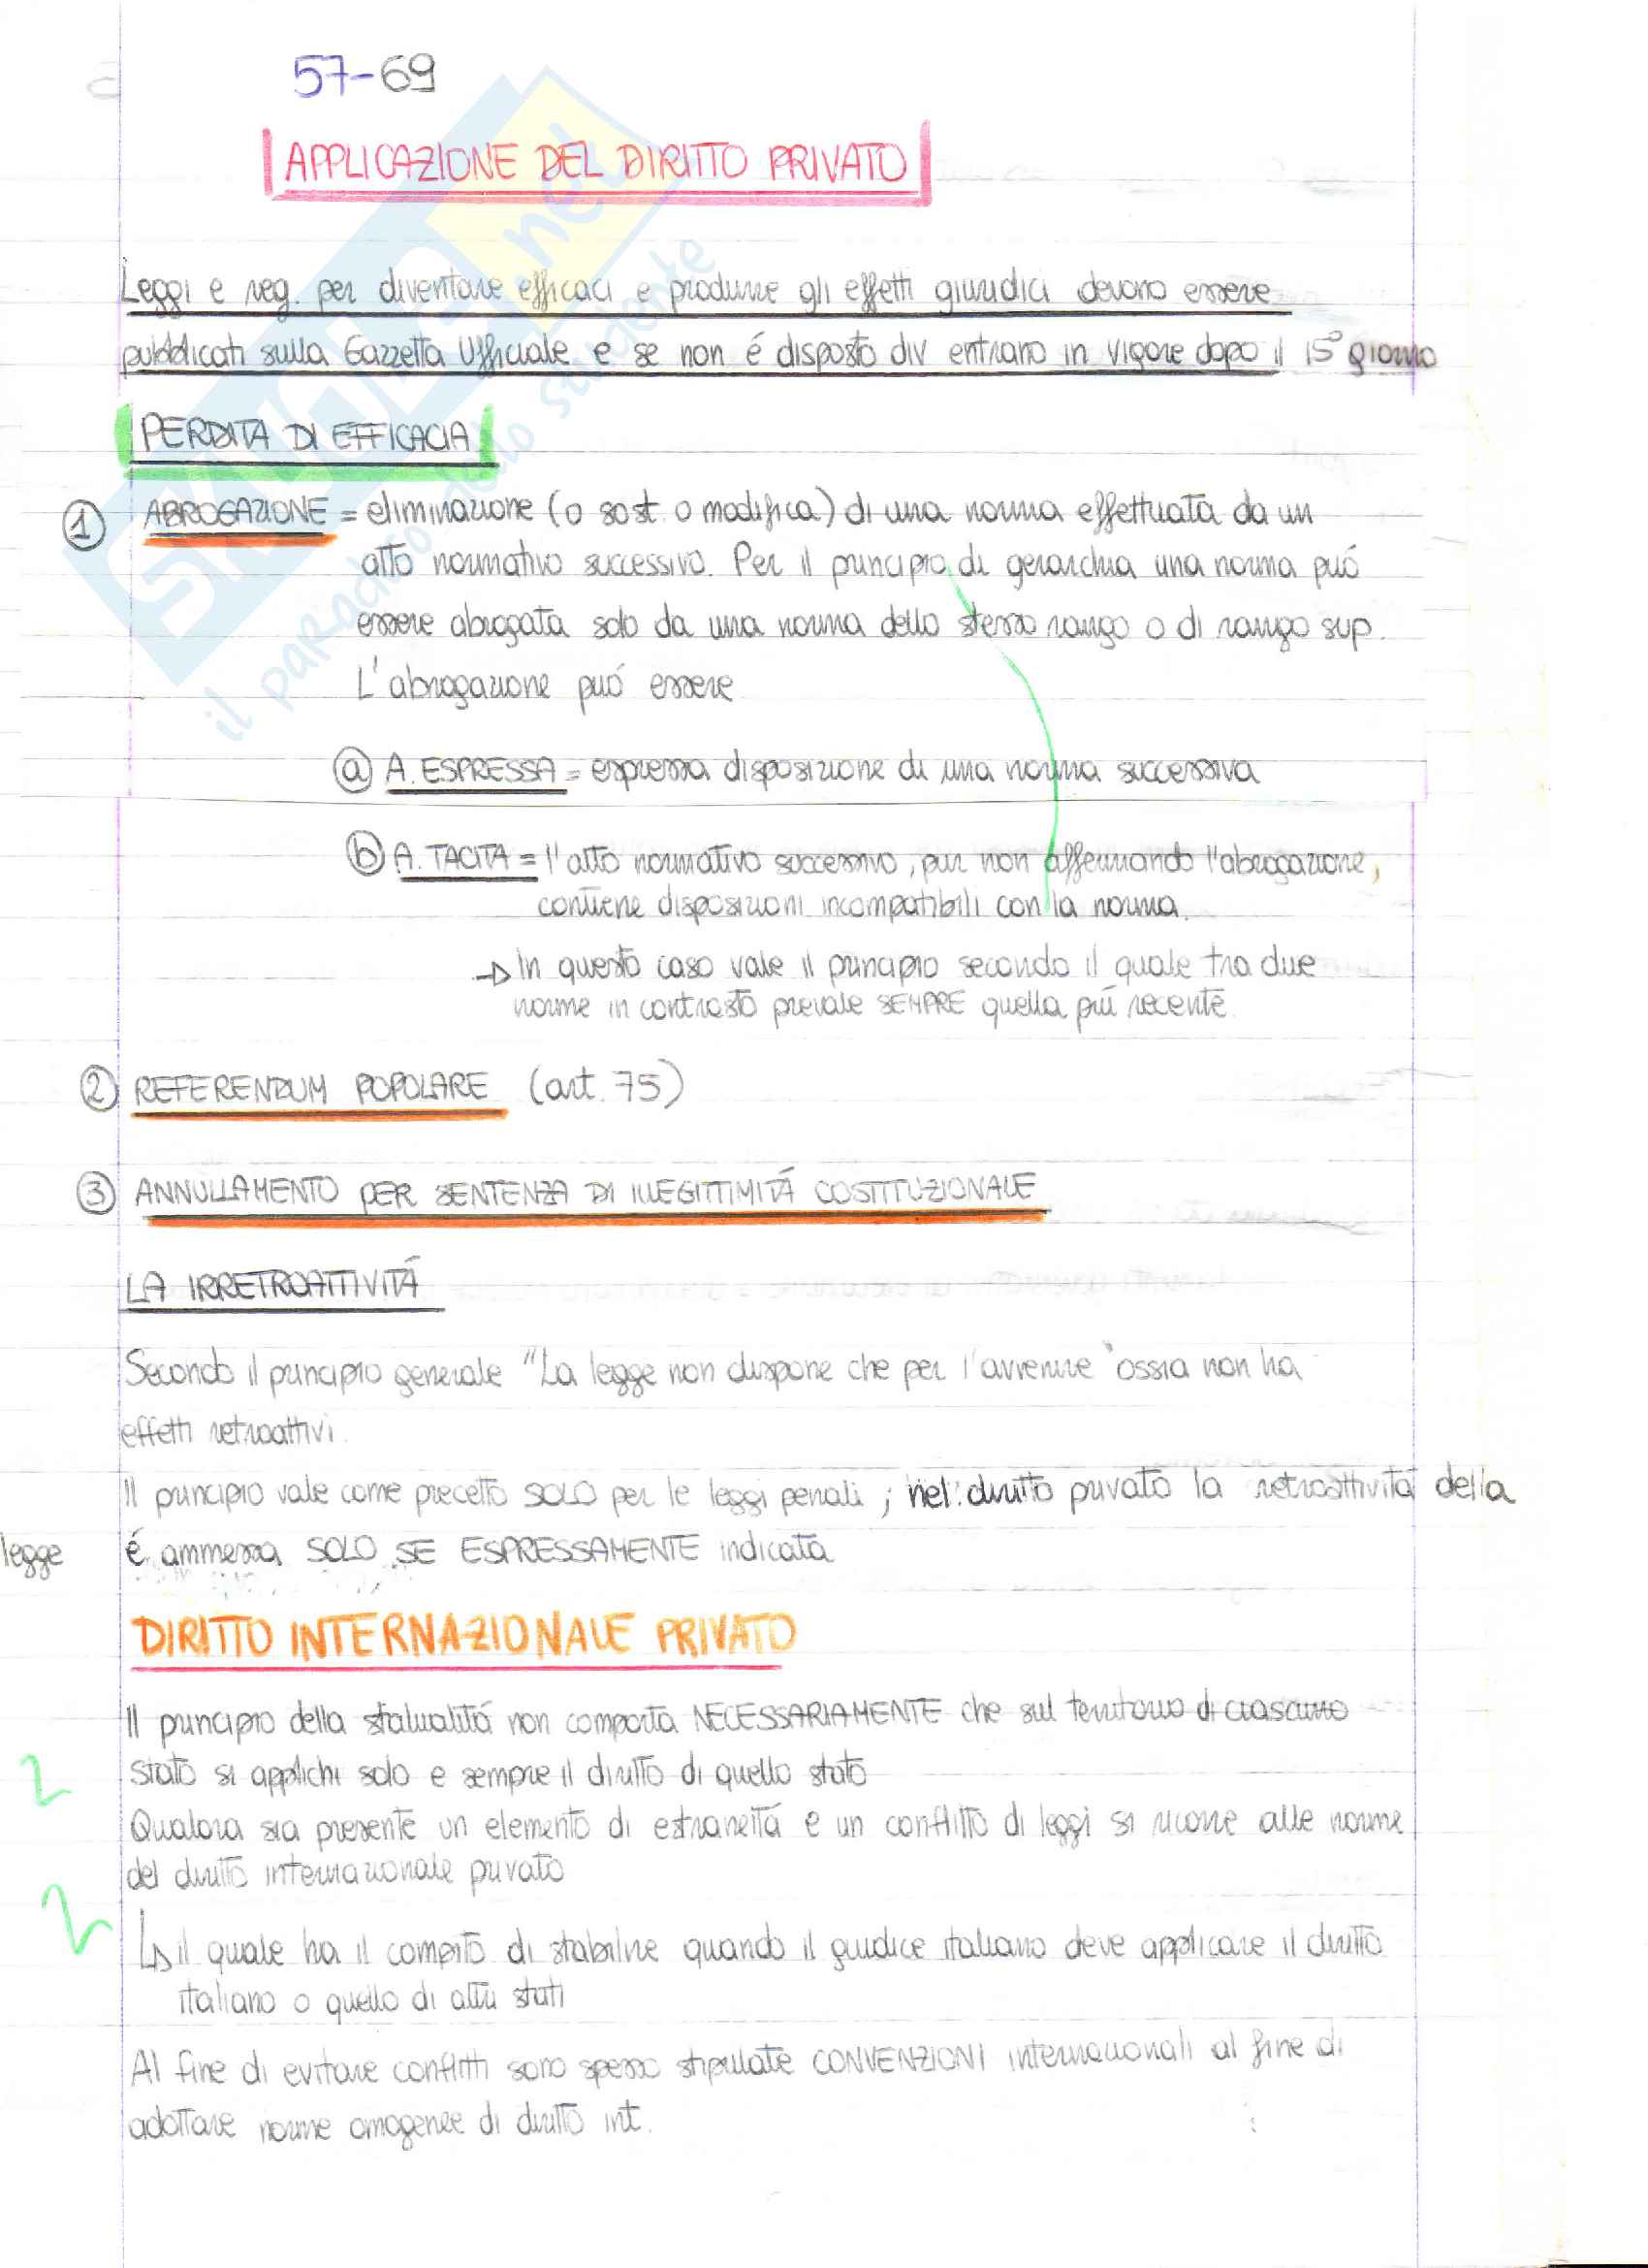 57-69
APPLICAZIONE DEL DIRITTO PRIVATO
Leggi e reg. per diventare efficaci e produrre gli effetti giuridici devono essere
pubblicati sulla Gazzetta Ufficiale e se non é disposto div entrano in vigore dopo il 15° giorno
PERDITA DI EFFICACIA
① ABROGAZIONE = eliminazione (o sost. o modifica) di una norma effettuata da un
atto normativo successivo. Per il principio di gerarchia una norma puó
essere abrogata solo da una norma dello stesso rango o di rango sup.
L'abrogazione puó essere
ⓐ A. ESPRESSA = espressa disposizione di una norma successiva
ⓑ A. TACITA = l'atto normativo successivo, pur non affermando l'abrogazione,
contiene disposizioni incompatibili con la norma.
→ In questo caso vale il principio secondo il quale tra due
norme in contrasto prevale SEMPRE quella piú recente.
② REFERENDUM POPOLARE (art. 75)
③ ANNULLAMENTO PER SENTENZA DI ILLEGITTIMITÁ COSTITUZIONALE
LA IRRETROATTIVITÁ
Secondo il principio generale "La legge non dispone che per l'avvenire" ossia non ha
effetti retroattivi.
Il principio vale come precetto SOLO per le leggi penali; nel diritto privato la retroattivitá della
legge é ammessa SOLO SE ESPRESSAMENTE indicata
DIRITTO INTERNAZIONALE PRIVATO
Il principio della statualitá non comporta NECESSARIAMENTE che sul territorio di ciascuno
stato si applichi solo e sempre il diritto di quello stato
Qualora sia presente un elemento di estraneitá e un conflitto di leggi si ricorre alle norme
del diritto internazionale privato
↳ il quale ha il compito di stabilire quando il giudice italiano deve applicare il diritto
italiano o quello di altri stati
Al fine di evitare conflitti sono spesso stipulate CONVENZIONI internazionali al fine di
adottare norme omogenee di diritto int.
SKUOLA.net
il paradiso dello studente